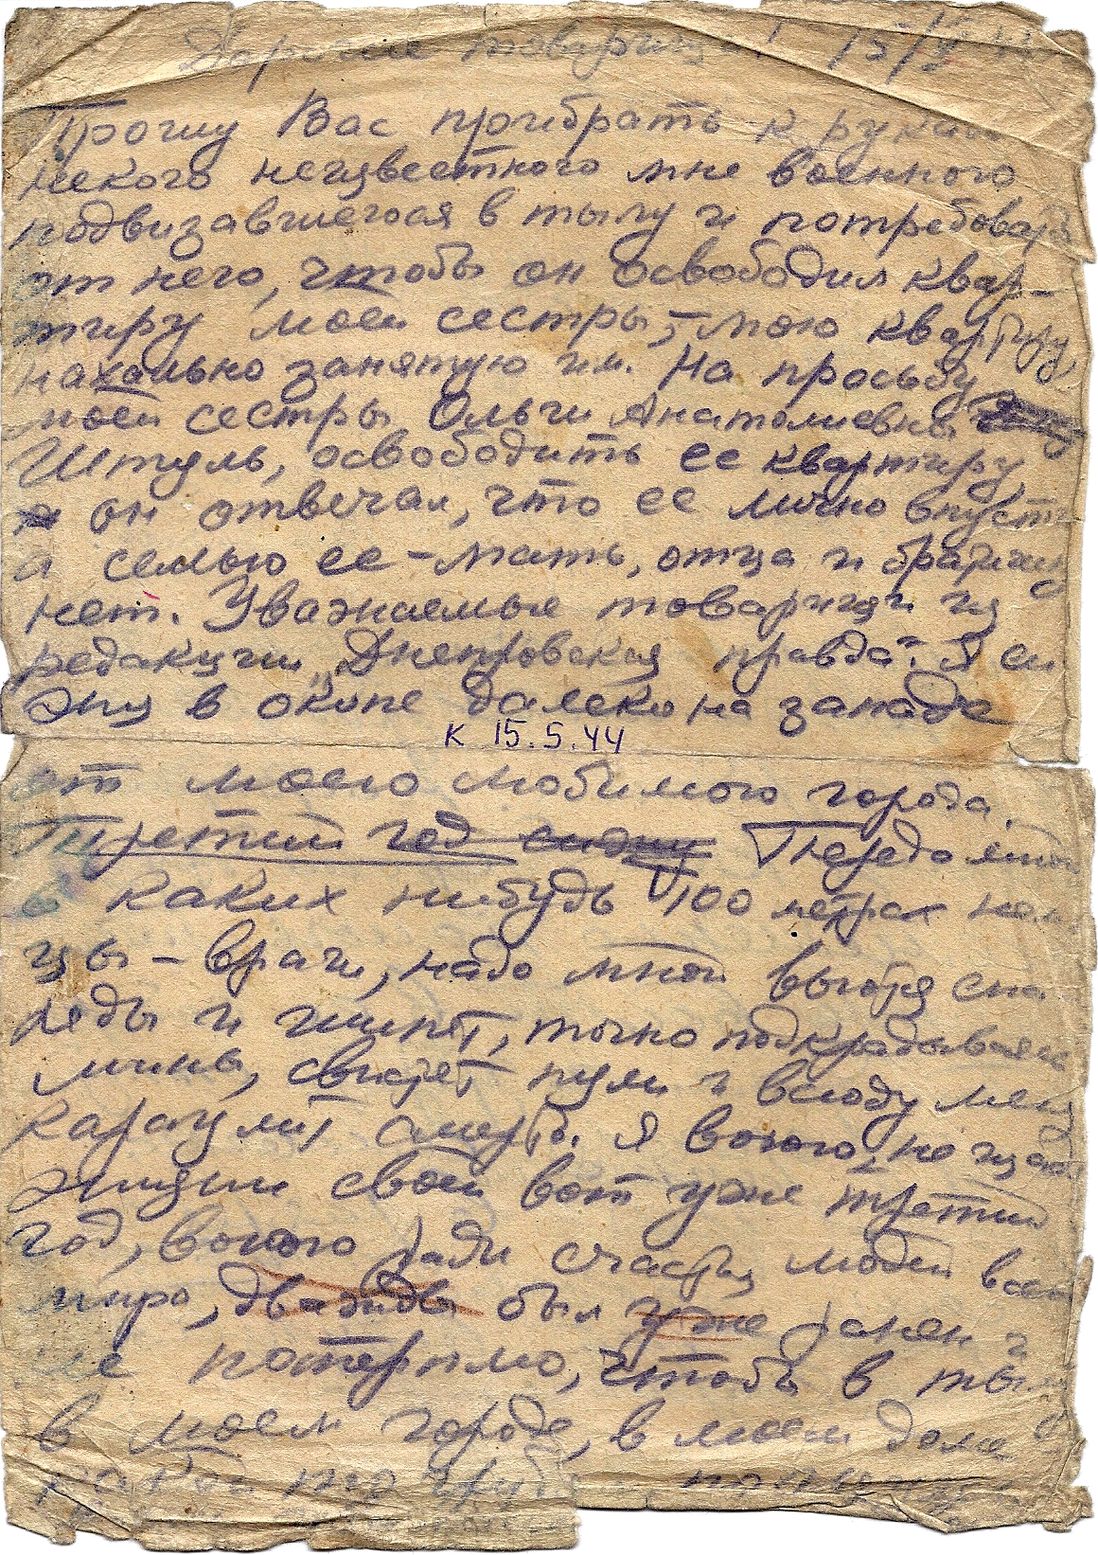 Дорогие товарищи! 15/V 44
Прошу Вас прибрать к рукам
некого неизвестного мне военного
подвизавшегося в тылу и потребовать
от него, чтобы он освободил квар-
тиру моей сестры, – мою квартиру,
нахально занятую им. На просьбу
моей сестры Ольги Анатолиевны
Штуль, освободить ее квартиру,
он отвечал, что ее лично впустит
а семью ее – мать, отца и братишку
нет. Уважаемые товарищи из
редакции „Днепровская правда". Я си
жу в окопе далеко на западе
К 15.5.44
от моего любимого города.
Третий год сижу Передо мной
в каких нибудь 100 метрах нем
цы – враги, надо мной воют сна
ряды и шипят, точно подкрадываясь
мины, свистят пули и всюду меня
караулит смерть. Я воюю, не щадя
жизни своей вот уже третий
год, воюю ради счастья людей всего
мира, дважды был уже ранен и
не потерплю, чтобы в тылу
в моем городе, в моем доме
какой то